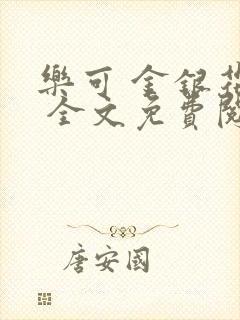 樂可 金銀花
全文免費閱
唐安國